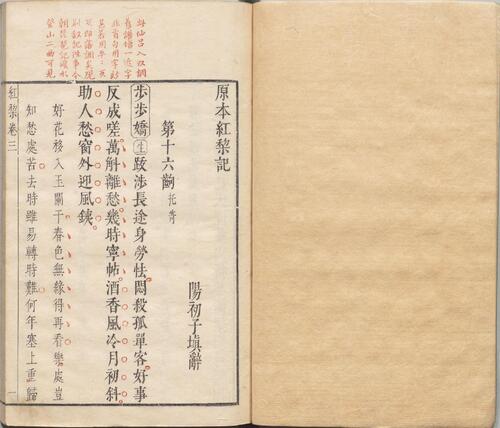 仙呂入双調
二曲可見
原本紅棃記
陽初子填辭
第十六齣
步步嬌 生 跋涉長途身勞怯悶殺孤單客好事
反成嗟萬斛離愁幾時寧帖酒香風冷月初斜
助人愁窗外迎風鐵
好花移入玉闌干春色無緣得再看樂處豈
知愁處苦去時雖易轉時難何年塞上重歸
紅棃卷三
一